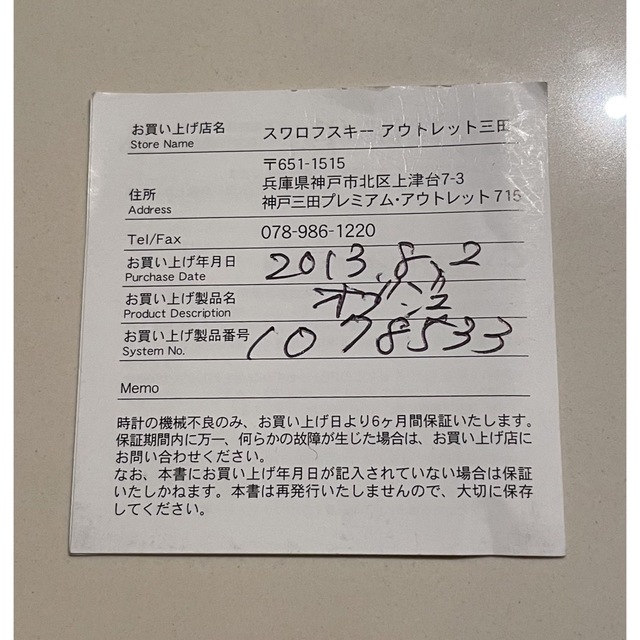 お買い上げ店名 スワロフスキー アウトレット三田
Store Name
〒651-1515
兵庫県神戸市北区上津台7-3
住所
Address
神戸三田プレミアム・アウトレット 715
Tel/Fax 078-986-1220
お買い上げ年月日 2013.8.2
Purchase Date
お買い上げ製品名 オブジェ
Product Description
お買い上げ製品番号 1078533
System No.
Memo
時計の機械不良のみ、お買い上げ日より6ヶ月間保証いたします。
保証期間内に万一、何らかの故障が生じた場合は、お買い上げ店に
お問い合わせください。
なお、本書にお買い上げ年月日が記入されていない場合は保証
いたしかねます。本書は再発行いたしませんので、大切に保存
してください。